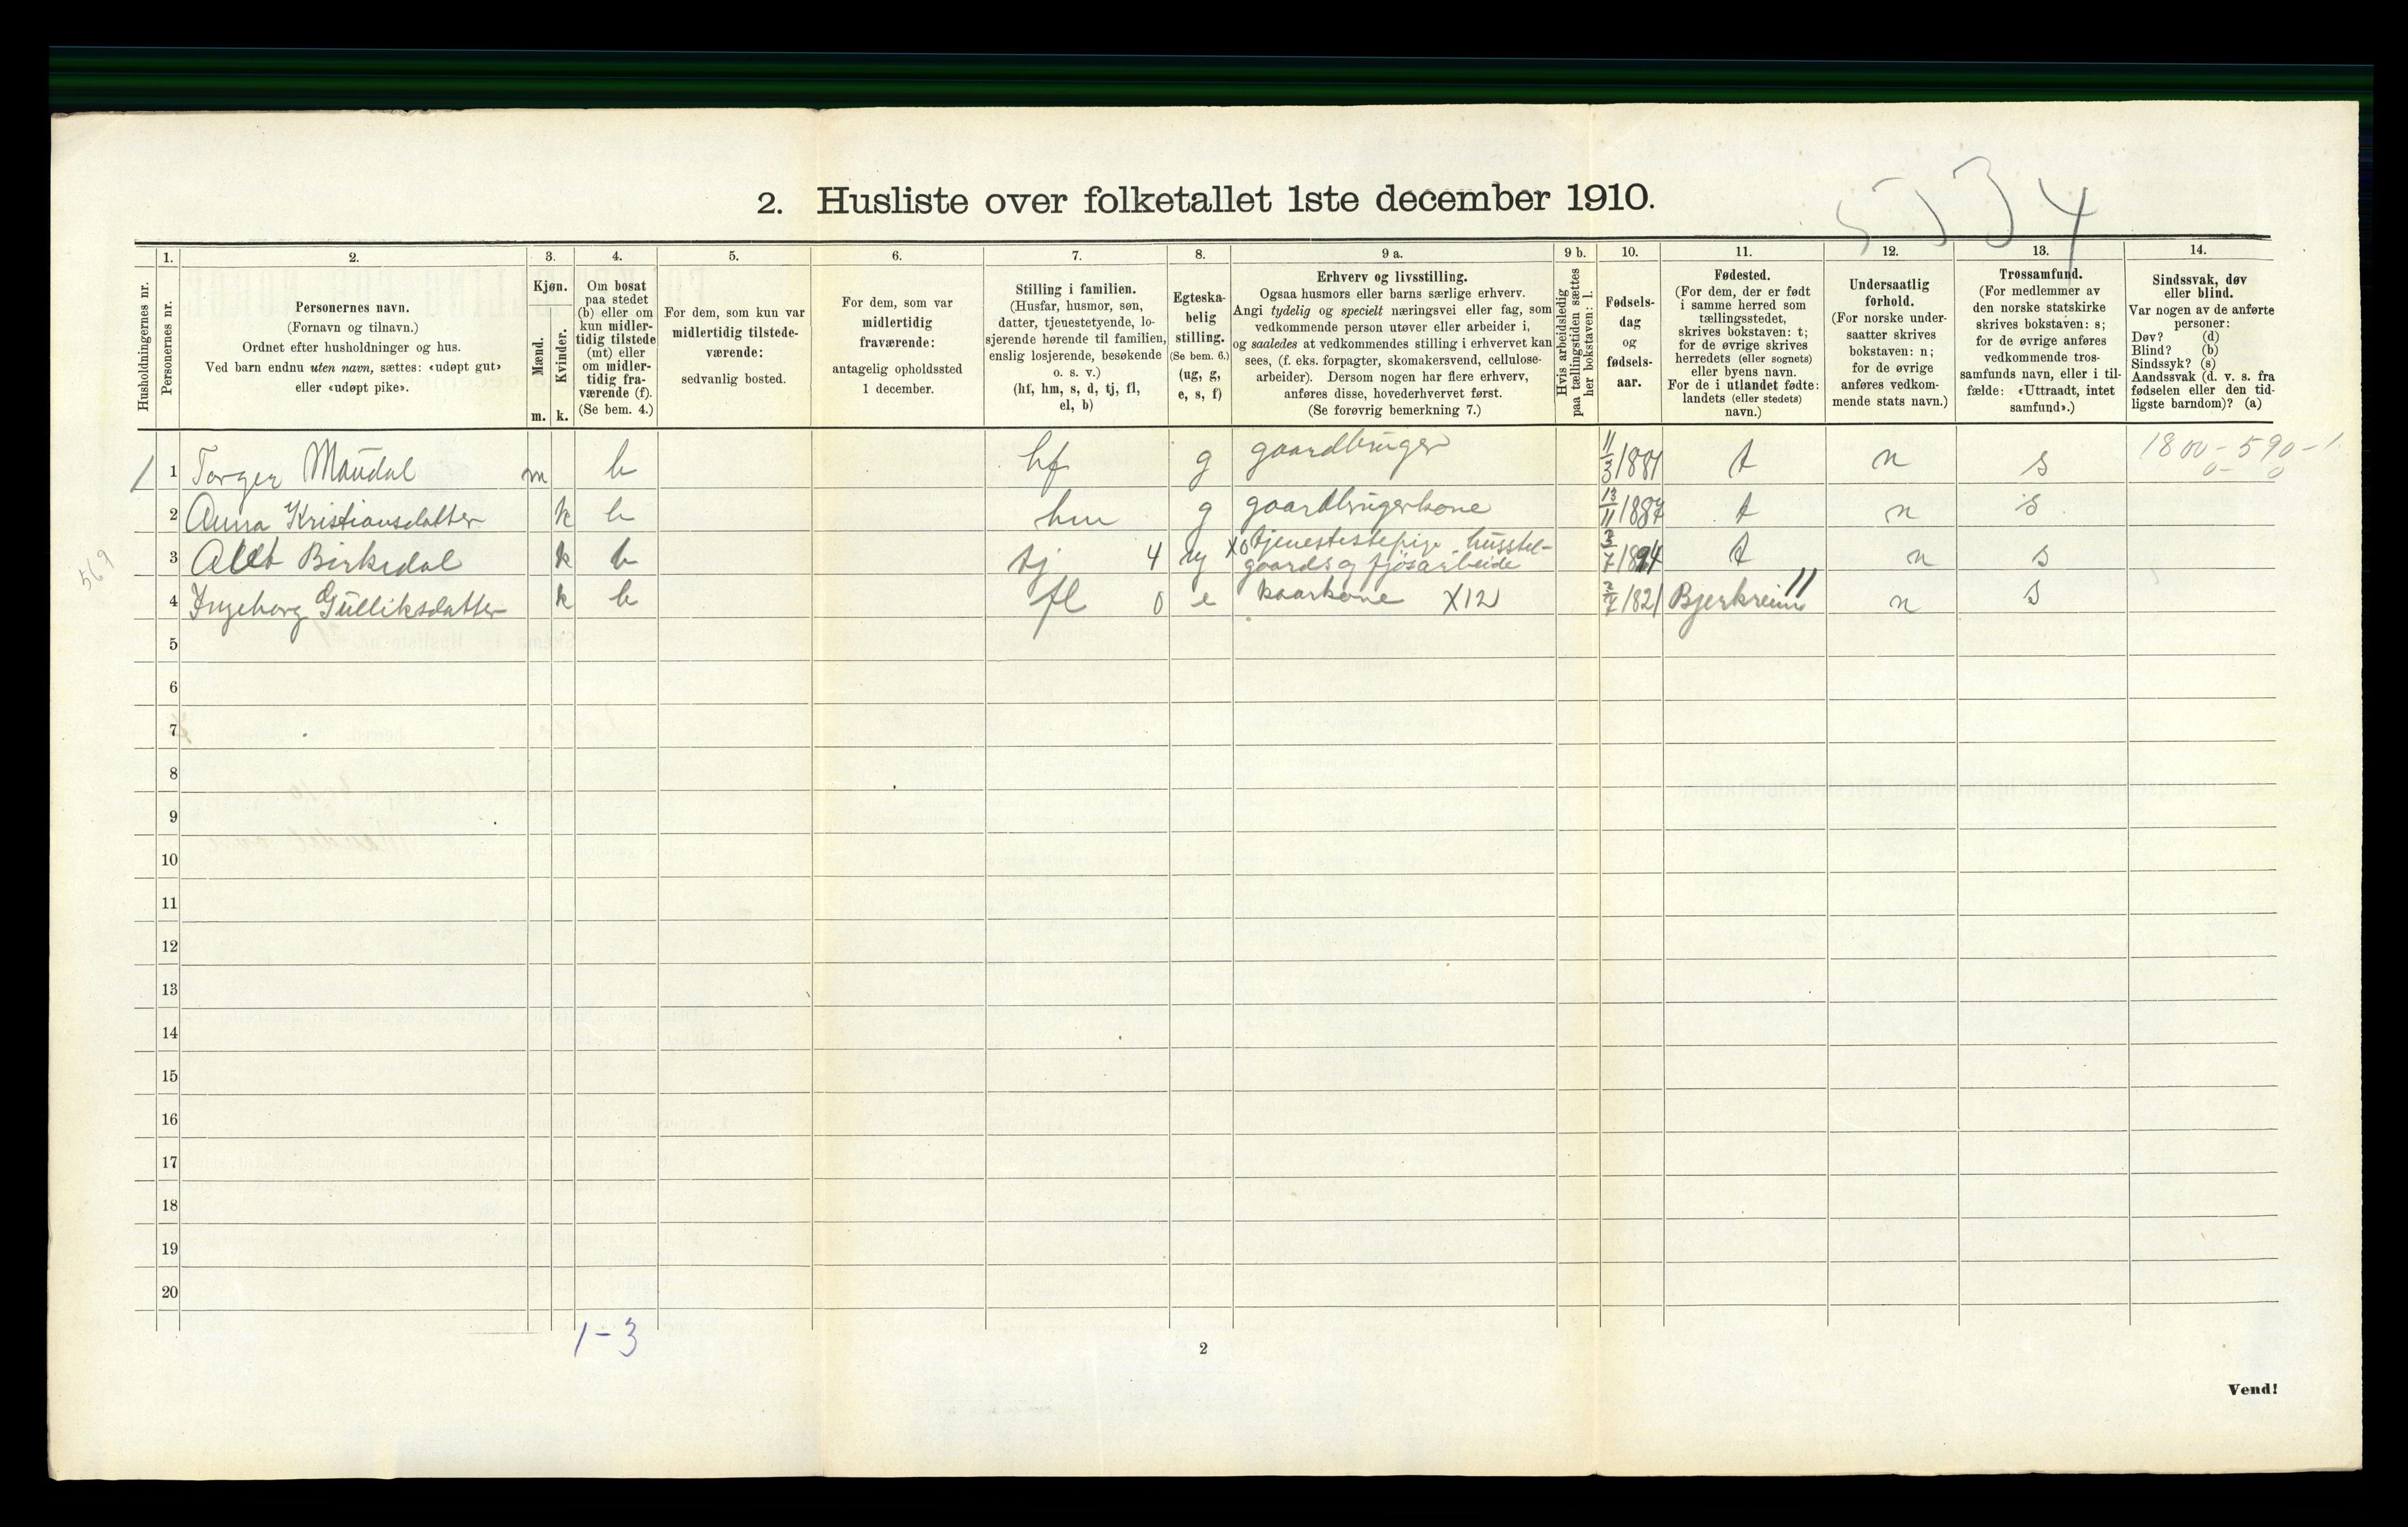 5334
2. Husliste over folketallet 1ste december 1910.
Husholdningernes nr.
1.
Personernes nr.
2.
Personernes navn.
(Fornavn og tilnavn.)
Ordnet efter husholdninger og hus.
Ved barn endnu uten navn, sættes: «udøpt gut»
eller «udøpt pike».
3.
Kjøn.
Mænd.
Kvinder.
m. k.
4.
Om bosat
paa stedet
(b) eller om
kun midler-
tidig tilstede
(mt) eller
om midler-
tidig fra-
værende (f).
(Se bem. 4.)
5.
For dem, som kun var
midlertidig tilstede-
værende:
sedvanlig bosted.
6.
For dem, som var
midlertidig
fraværende:
antagelig opholdssted
1 december.
7.
Stilling i familien.
(Husfar, husmor, søn,
datter, tjenestetyende, lo-
sjerende hørende til familien,
enslig losjerende, besøkende
o. s. v.)
(hf, hm, s, d, tj, fl,
el, b)
8.
Egteska-
belig
stilling.
(Se bem. 6.)
(ug, g,
e, s, f)
9 a.
Erhverv og livsstilling.
Ogsaa husmors eller barns særlige erhverv.
Angi tydelig og specielt næringsvei eller fag, som
vedkommende person utøver eller arbeider i,
og saaledes at vedkommendes stilling i erhvervet kan
sees, (f. eks. forpagter, skomakersvend, cellulose-
arbeider). Dersom nogen har flere erhverv,
anføres disse, hovederhvervet først.
(Se forøvrig bemerkning 7.)
9 b.
Hvis arbeidsledig
paa tællingstiden sættes
her bokstaven: l.
10.
Fødsels-
dag
og
fødsels-
aar.
11.
Fødested.
(For dem, der er født
i samme herred som
tællingsstedet,
skrives bokstaven: t;
for de øvrige skrives
herredets (eller sognets)
eller byens navn.
For de i utlandet fødte:
landets (eller stedets)
navn.)
12.
Undersaatlig
forhold.
(For norske under-
saatter skrives
bokstaven: n;
for de øvrige
anføres vedkom-
mende stats navn.)
13.
Trossamfund.
(For medlemmer av
den norske statskirke
skrives bokstaven: s;
for de øvrige anføres
vedkommende tros-
samfunds navn, eller i til-
fælde: «Uttraadt, intet
samfund».)
14.
Sindssvak, døv
eller blind.
Var nogen av de anførte
personer:
Døv? (d)
Blind? (b)
Sindssyk? (s)
Aandssvak (d. v. s. fra
fødselen eller den tid-
ligste barndom)? (a)
1 1 Torger Maudal m b hf g gaardbruger 11/3 1881 t n s 1800-590-1
0- 0
2 Anna Kristiansdatter k b hm g gaardbrugerkone 13/11 1887 t n s
3 Birkedal k b tj 4 ug X0 tjenestepige husstel-
gaards og fjösarbeide 3/7 1894 t n s
569
4 Ingeborg Gulliksdatter k b fl 0 e kaarkone X12 2/7 1821 Bjerkreim 11 n s
5
6
7
8
9
10
11
12
13
14
15
16
17
18
19
20
1-3
2
Vend!